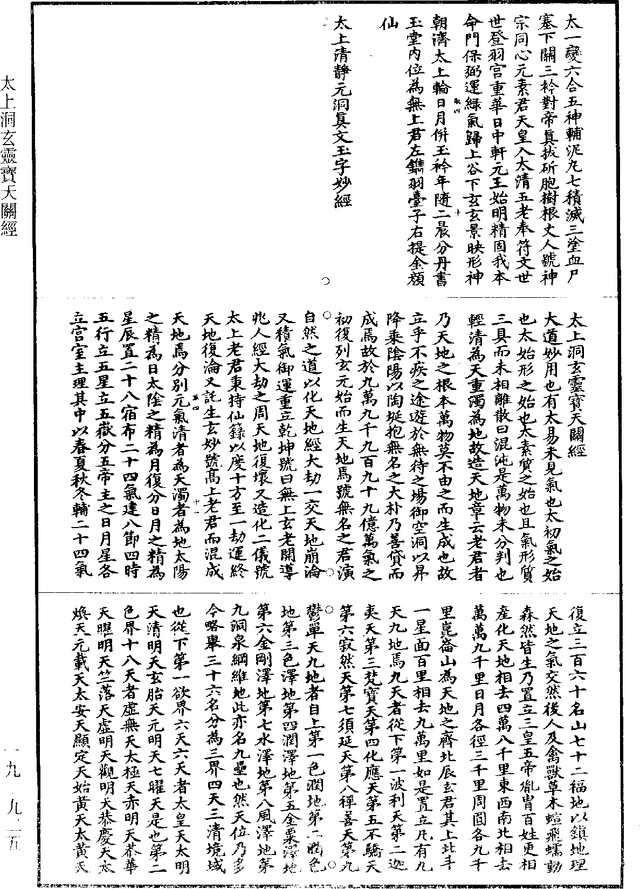 太一變六合五神輔泥丸七積滅三塗血尸
塞下關三衿對帝真拔斫胞樹根丈人號神
宗同心元素君天皇入太清五老奉符文世
世登羽宮重華日中軒元王始明精固我本
命門保弼運綠氣歸上谷下玄玄景映形神
朝濟太上輪日月併玉衿年隨二晨分丹書
玉堂內位為無上君左鐫羽臺子右提金類
仙
太上清靜元洞真文玉字妙經
太上洞玄靈寶天關經
大道妙用也有太易未見氣也太初氣之始
也太始形之始也太素質之始也且氣形質
三具而未相離散曰混沌是萬物未分判也
輕清為天重濁為地故造天地章云老君者
乃天地之根本萬物莫不由之而生成也故
立乎不疾之途遊於無待之場御空洞以昇
降乘陰陽以陶埏抱無名之大朴乃善貸而
成焉故於九萬九千九百九十九億萬氣之
初復列玄元始而生天地焉號無名之君演
自然之道以化天地經大劫一交天地崩淪
又積氣御運重立乾坤號曰無上玄老開導
兆人經大劫之周天地復壞又造化二儀號
太上老君秉持仙籙以度十方至一劫運終
天地復淪又託生玄妙號高上老君而混成
天地焉分別元氣清者為天濁者為地太陽
之精為日太陰之精為月復分日月之精為
星辰置二十八宿布二十四氣建八節四時
五行立五星立五嶽分五帝主之日月星各
立宮室主理其中以春夏秋冬輔二十四氣
復立三百六十名山七十二福地以鎮地理
天地之氣交然後人及禽獸草木蝖飛蠕動
森然皆生乃置立三皇五帝胤冑百姓更相
產化天地相去四萬八千里東西南北相去
萬萬九千里日月各徑三千里周圓各九千
里崑崙山為天地之齊北辰玄君其上北斗
一星面百里相去九萬里如是置立凡有九
天九地焉九天者從下第一波利天第二迦
夷天第三梵寶天第四化應天第五不驕天
第六寂然天第七須延天第八禪善天第九
鬱單天九地者自上第一色潤地第二潤色
地第三色澤地第四潤澤地第五金粟澤地
第六金剛澤地第七水澤地第八風澤地第
九洞泉綱維地此亦名九壘也然天位乃多
今略舉三十六名分為三界四天三清境域
也從下第一欲界六天六天者太皇天太明
天清明天玄胎天元明天七曜天是也第二
色界十八天者虛無天太極天赤明天恭華
天曜明天竺落天虛明天觀明天恭慶天太
煥天元載天太安天顯定天始黃天太黃天
太上洞玄靈寶天關經
一九 九二五